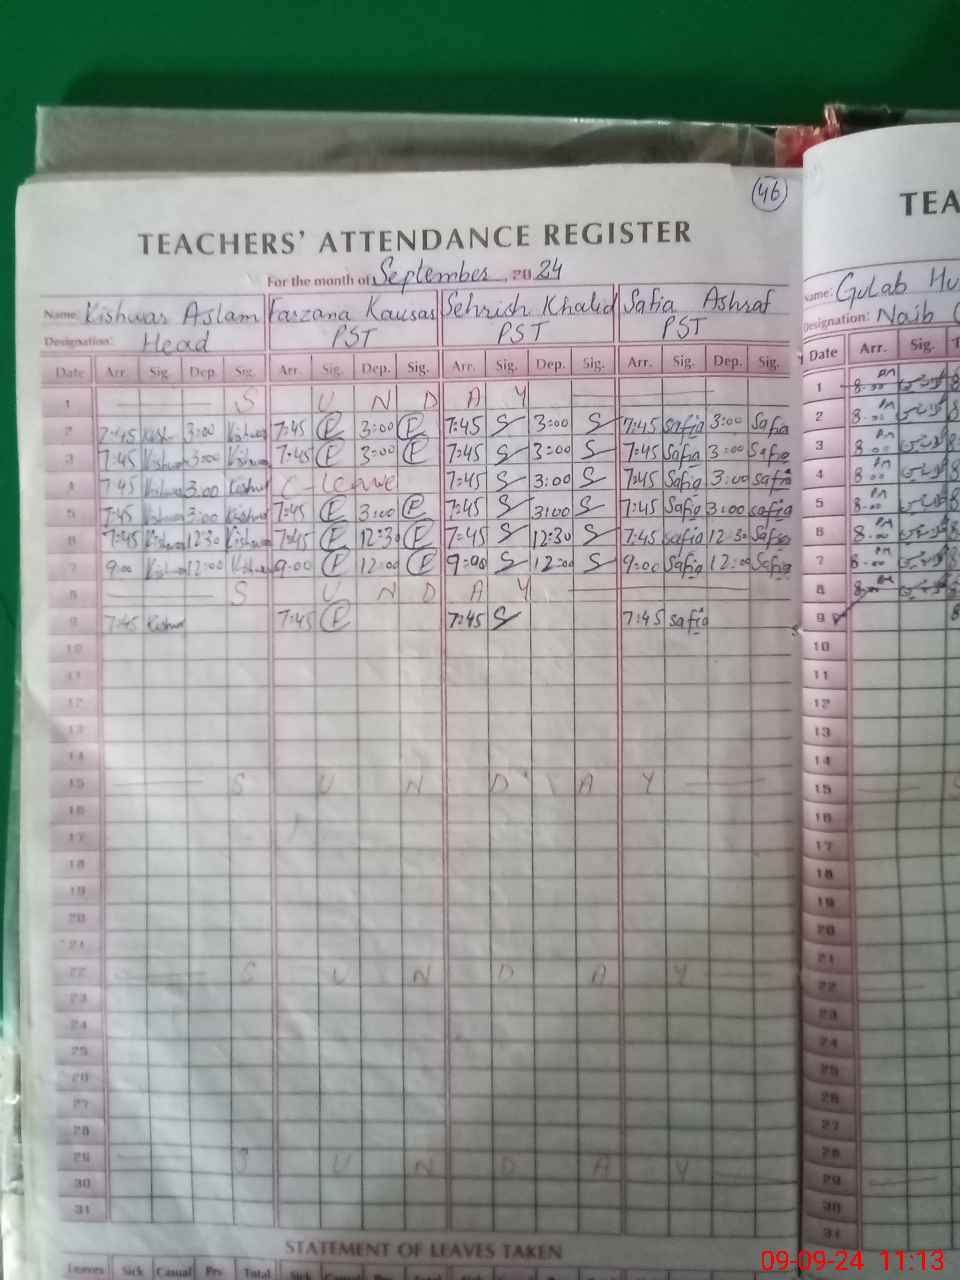 46
TEACHERS' ATTENDANCE REGISTER
For the month of September, 2024
Name: Kishwar Aslam Farzana Kausar Sehrish Khalid Safia Ashraf
Designation: Head PST PST PST
Date Arr. Sig. Dep. Sig. Arr. Sig. Dep. Sig. Arr. Sig. Dep. Sig. Arr. Sig. Dep. Sig.
1 S U N D A Y
2 7:45 Kish 3:00 Kishwar 7:45 F 3:00 F 7:45 S 3:00 S 7:45 Safia 3:00 Safia
3 7:45 Kishwar 3:00 Kishwar 7:45 F 3:00 F 7:45 S 3:00 S 7:45 Safia 3:00 Safia
4 7:45 Kishwar 3:00 Kishwar C-leave 7:45 S 3:00 S 7:45 Safia 3:00 Safia
5 7:45 Kishwar 3:00 Kishwar 7:45 F 3:00 F 7:45 S 3:00 S 7:45 Safia 3:00 Safia
6 7:45 Kishwar 12:30 Kishwar 7:45 F 12:30 F 7:45 S 12:30 S 7:45 Safia 12:30 Safia
7 9:00 Kishwar 12:00 Kishwar 9:00 F 12:00 F 9:00 S 12:00 S 9:00 Safia 12:00 Safia
8 S U N D A Y
9 7:45 Kishwar 7:45 F 7:45 S 7:45 Safia
10
11
12
13
14
15 S U N D A Y
16
17
18
19
20
21
22 S U N D A Y
23
24
25
26
27
28
29 S U N D A Y
30
31
STATEMENT OF LEAVES TAKEN
Leaves Sick Casual Prv. Total
TEA
Name: Gulab
Designation: Naib
Date Arr. Sig.
1 8:00 PM
2 8:00 PM
3 8:00 PM
4 8:00 PM
5 8:00 PM
6 8:00 PM
7 8:00 PM
8 8:00 PM
9
10
11
12
13
14
15
16
17
18
19
20
21
22
23
24
25
26
27
28
29
30
31
09-09-24 11:13